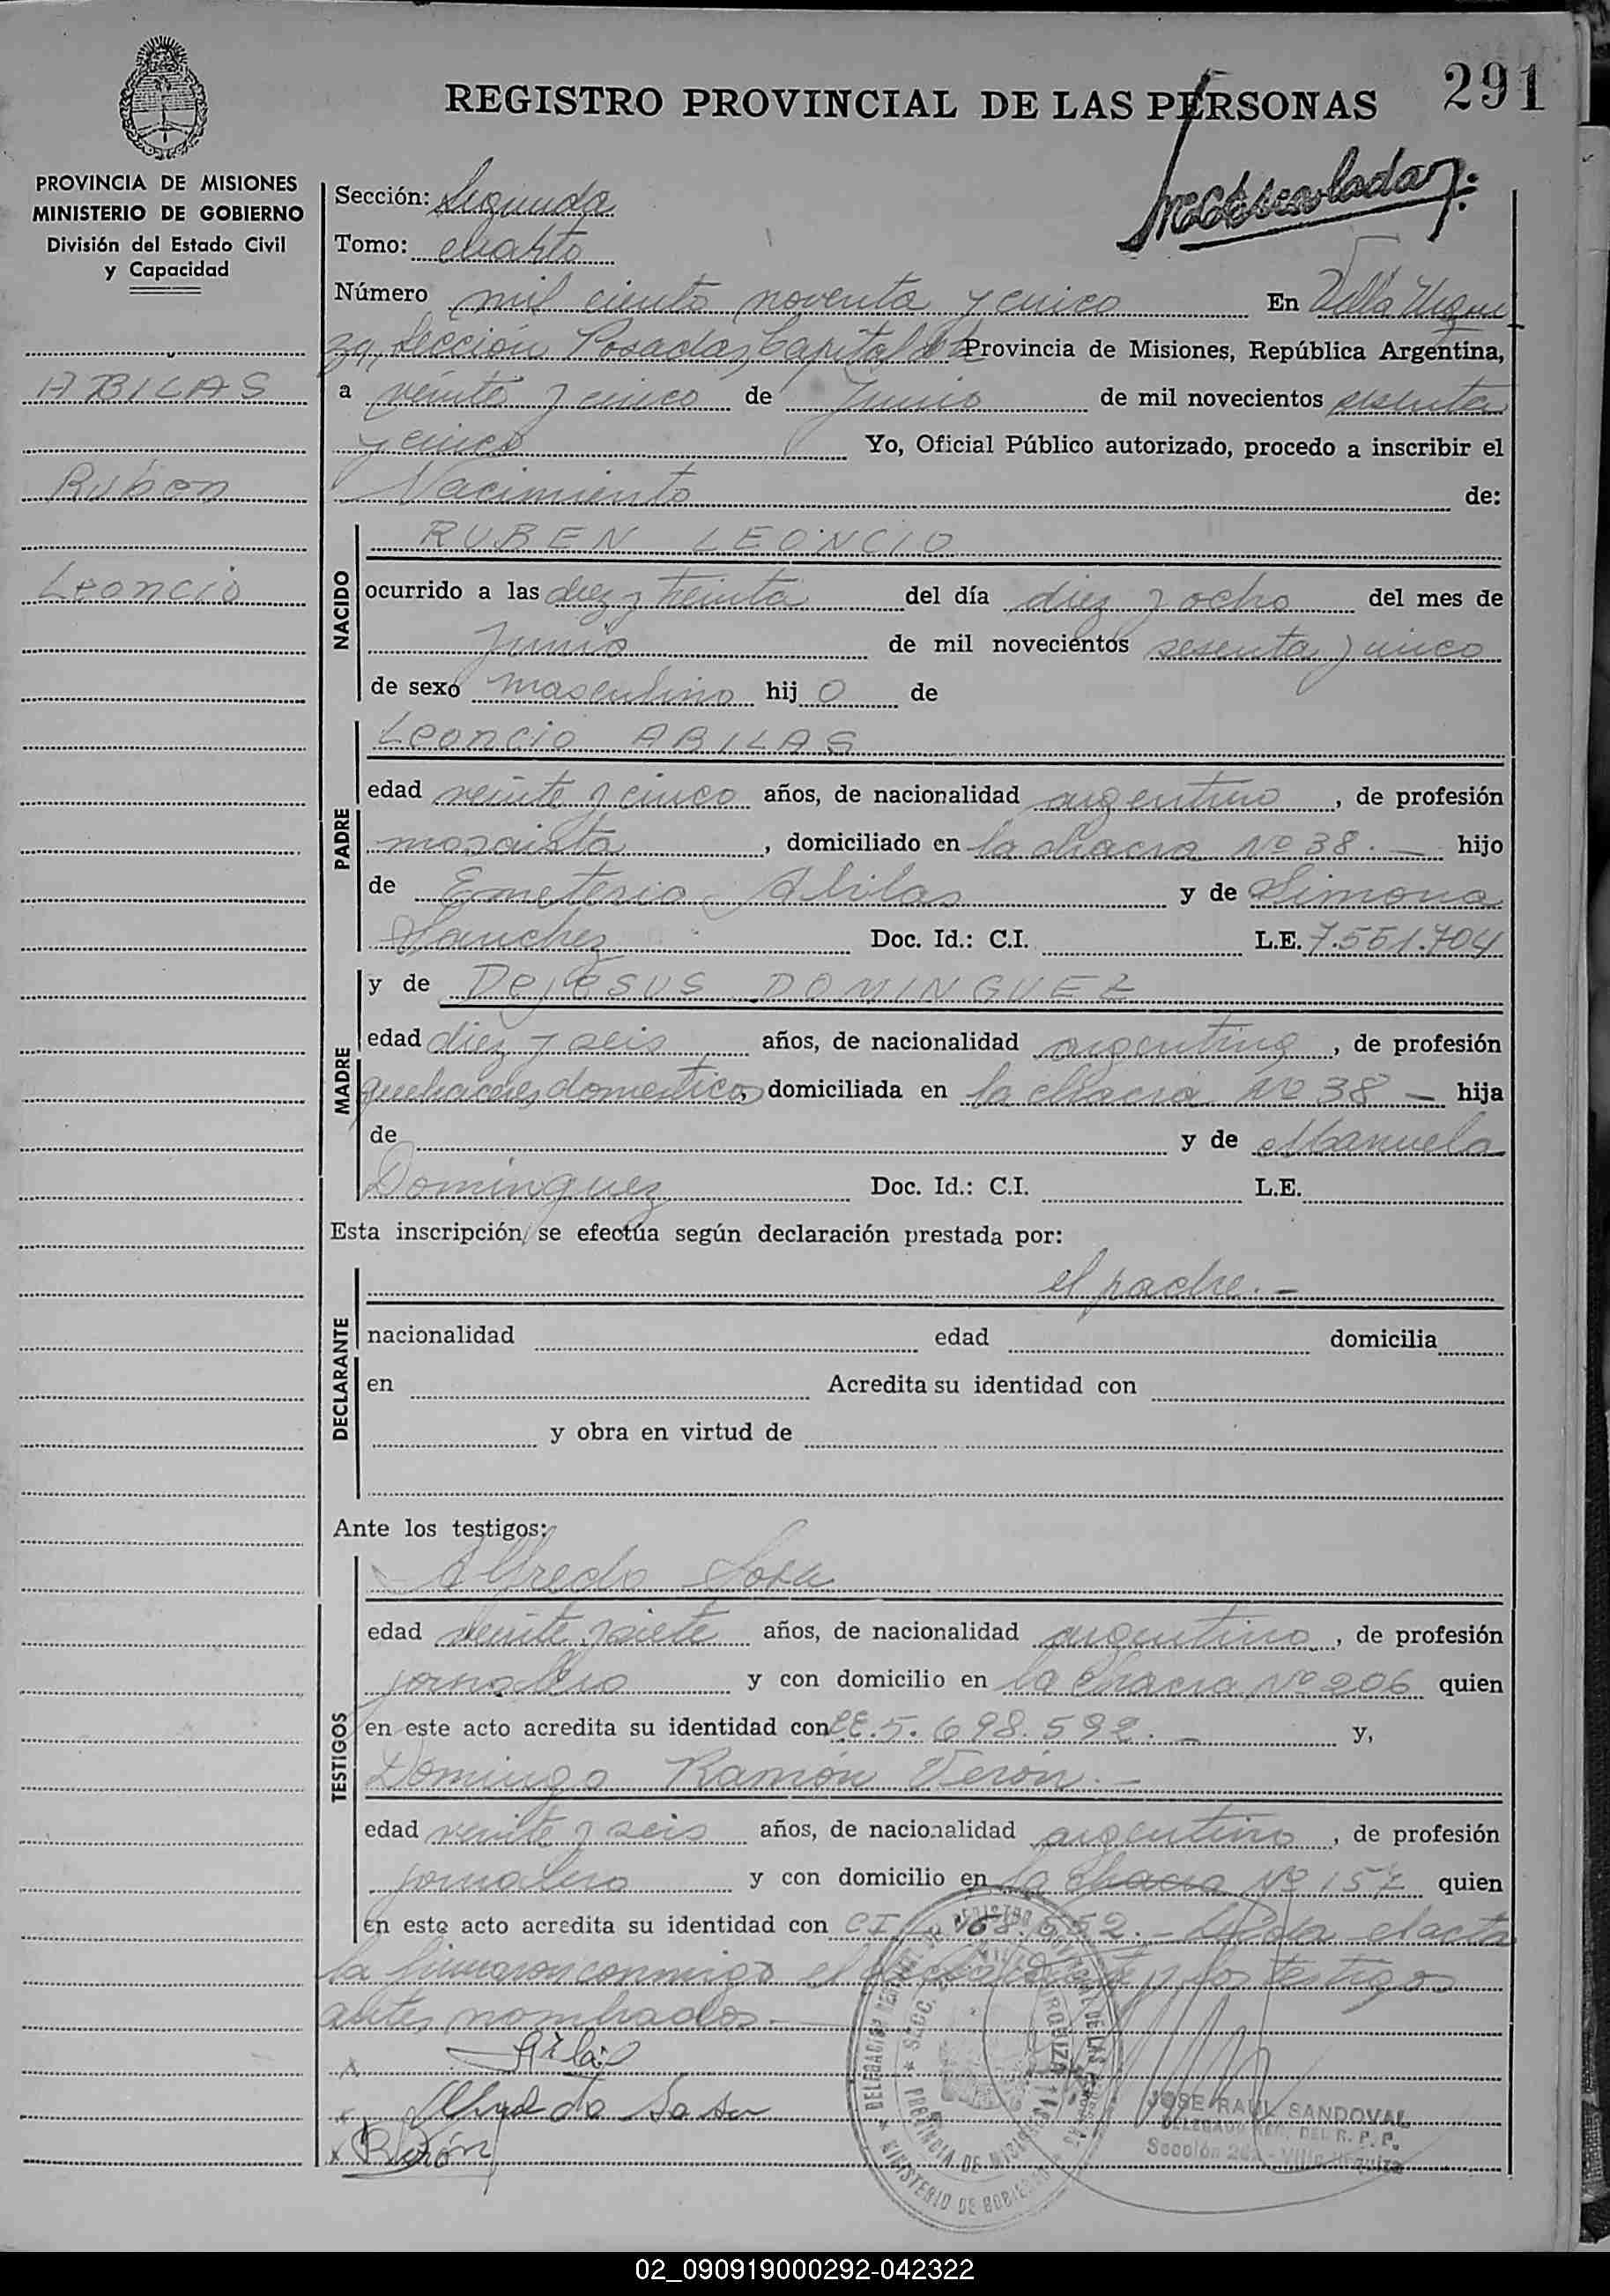 291
REGISTRO PROVINCIAL DE LAS PERSONAS
PROVINCIA DE MISIONES
MINISTERIO DE GOBIERNO
División del Estado Civil
y Capacidad
ABILAS
Rubén
Leoncio
Sección: Segunda
Tomo: cuarto
Número mil ciento noventa y cinco En Villa Urqui
za, Sección Posadas, Capital de la Provincia de Misiones, República Argentina,
a veinte y cinco de Junio de mil novecientos sesenta
y cinco Yo, Oficial Público autorizado, procedo a inscribir el
Nacimiento de:
NACIDO
RUBEN LEONCIO
ocurrido a las diez y treinta del día diez y ocho del mes de
Junio de mil novecientos sesenta y cinco
de sexo masculino hij o de
PADRE
Leoncio ABILAS
edad veinte y cinco años, de nacionalidad argentino, de profesión
mosaista, domiciliado en la chacra Nº 38.— hijo
de Emeterio Abilas y de Simona
Sanchez Doc. Id.: C.I. L.E. 7.551.704
MADRE
y de DeJESUS DOMINGUEZ
edad diez y seis años, de nacionalidad argentina, de profesión
quehaceres domesticos domiciliada en la chacra Nº 38 — hija
de y de Manuela
Dominguez Doc. Id.: C.I. L.E.
Esta inscripción se efectúa según declaración prestada por:
DECLARANTE
el padre.-
nacionalidad edad domicilia
en Acredita su identidad con
y obra en virtud de
Ante los testigos:
TESTIGOS
Alfredo Sosa
edad veinte y siete años, de nacionalidad argentino, de profesión
jornalero y con domicilio en la chacra Nº 206 quien
en este acto acredita su identidad con LE.5.698.592.- y,
Domingo Ramón Verón.-
edad veinte y seis años, de nacionalidad argentino, de profesión
jornalero y con domicilio en la chacra Nº 157 quien
en este acto acredita su identidad con CI 168.552.- Leida el acta
la firmaron conmigo el declarante y los testigos
antes nombrados.-
Alfredo Sosa
Verón
DELEGACION REGISTRO PROVINCIAL DE LAS PERSONAS
MINISTERIO DE GOBIERNO
PROVINCIA DE MISIONES
JOSE RAUL SANDOVAL
DELEGADO REG. DEL R. P. P.
Sección 2da - Villa Urquiza
02_090919000292-042322